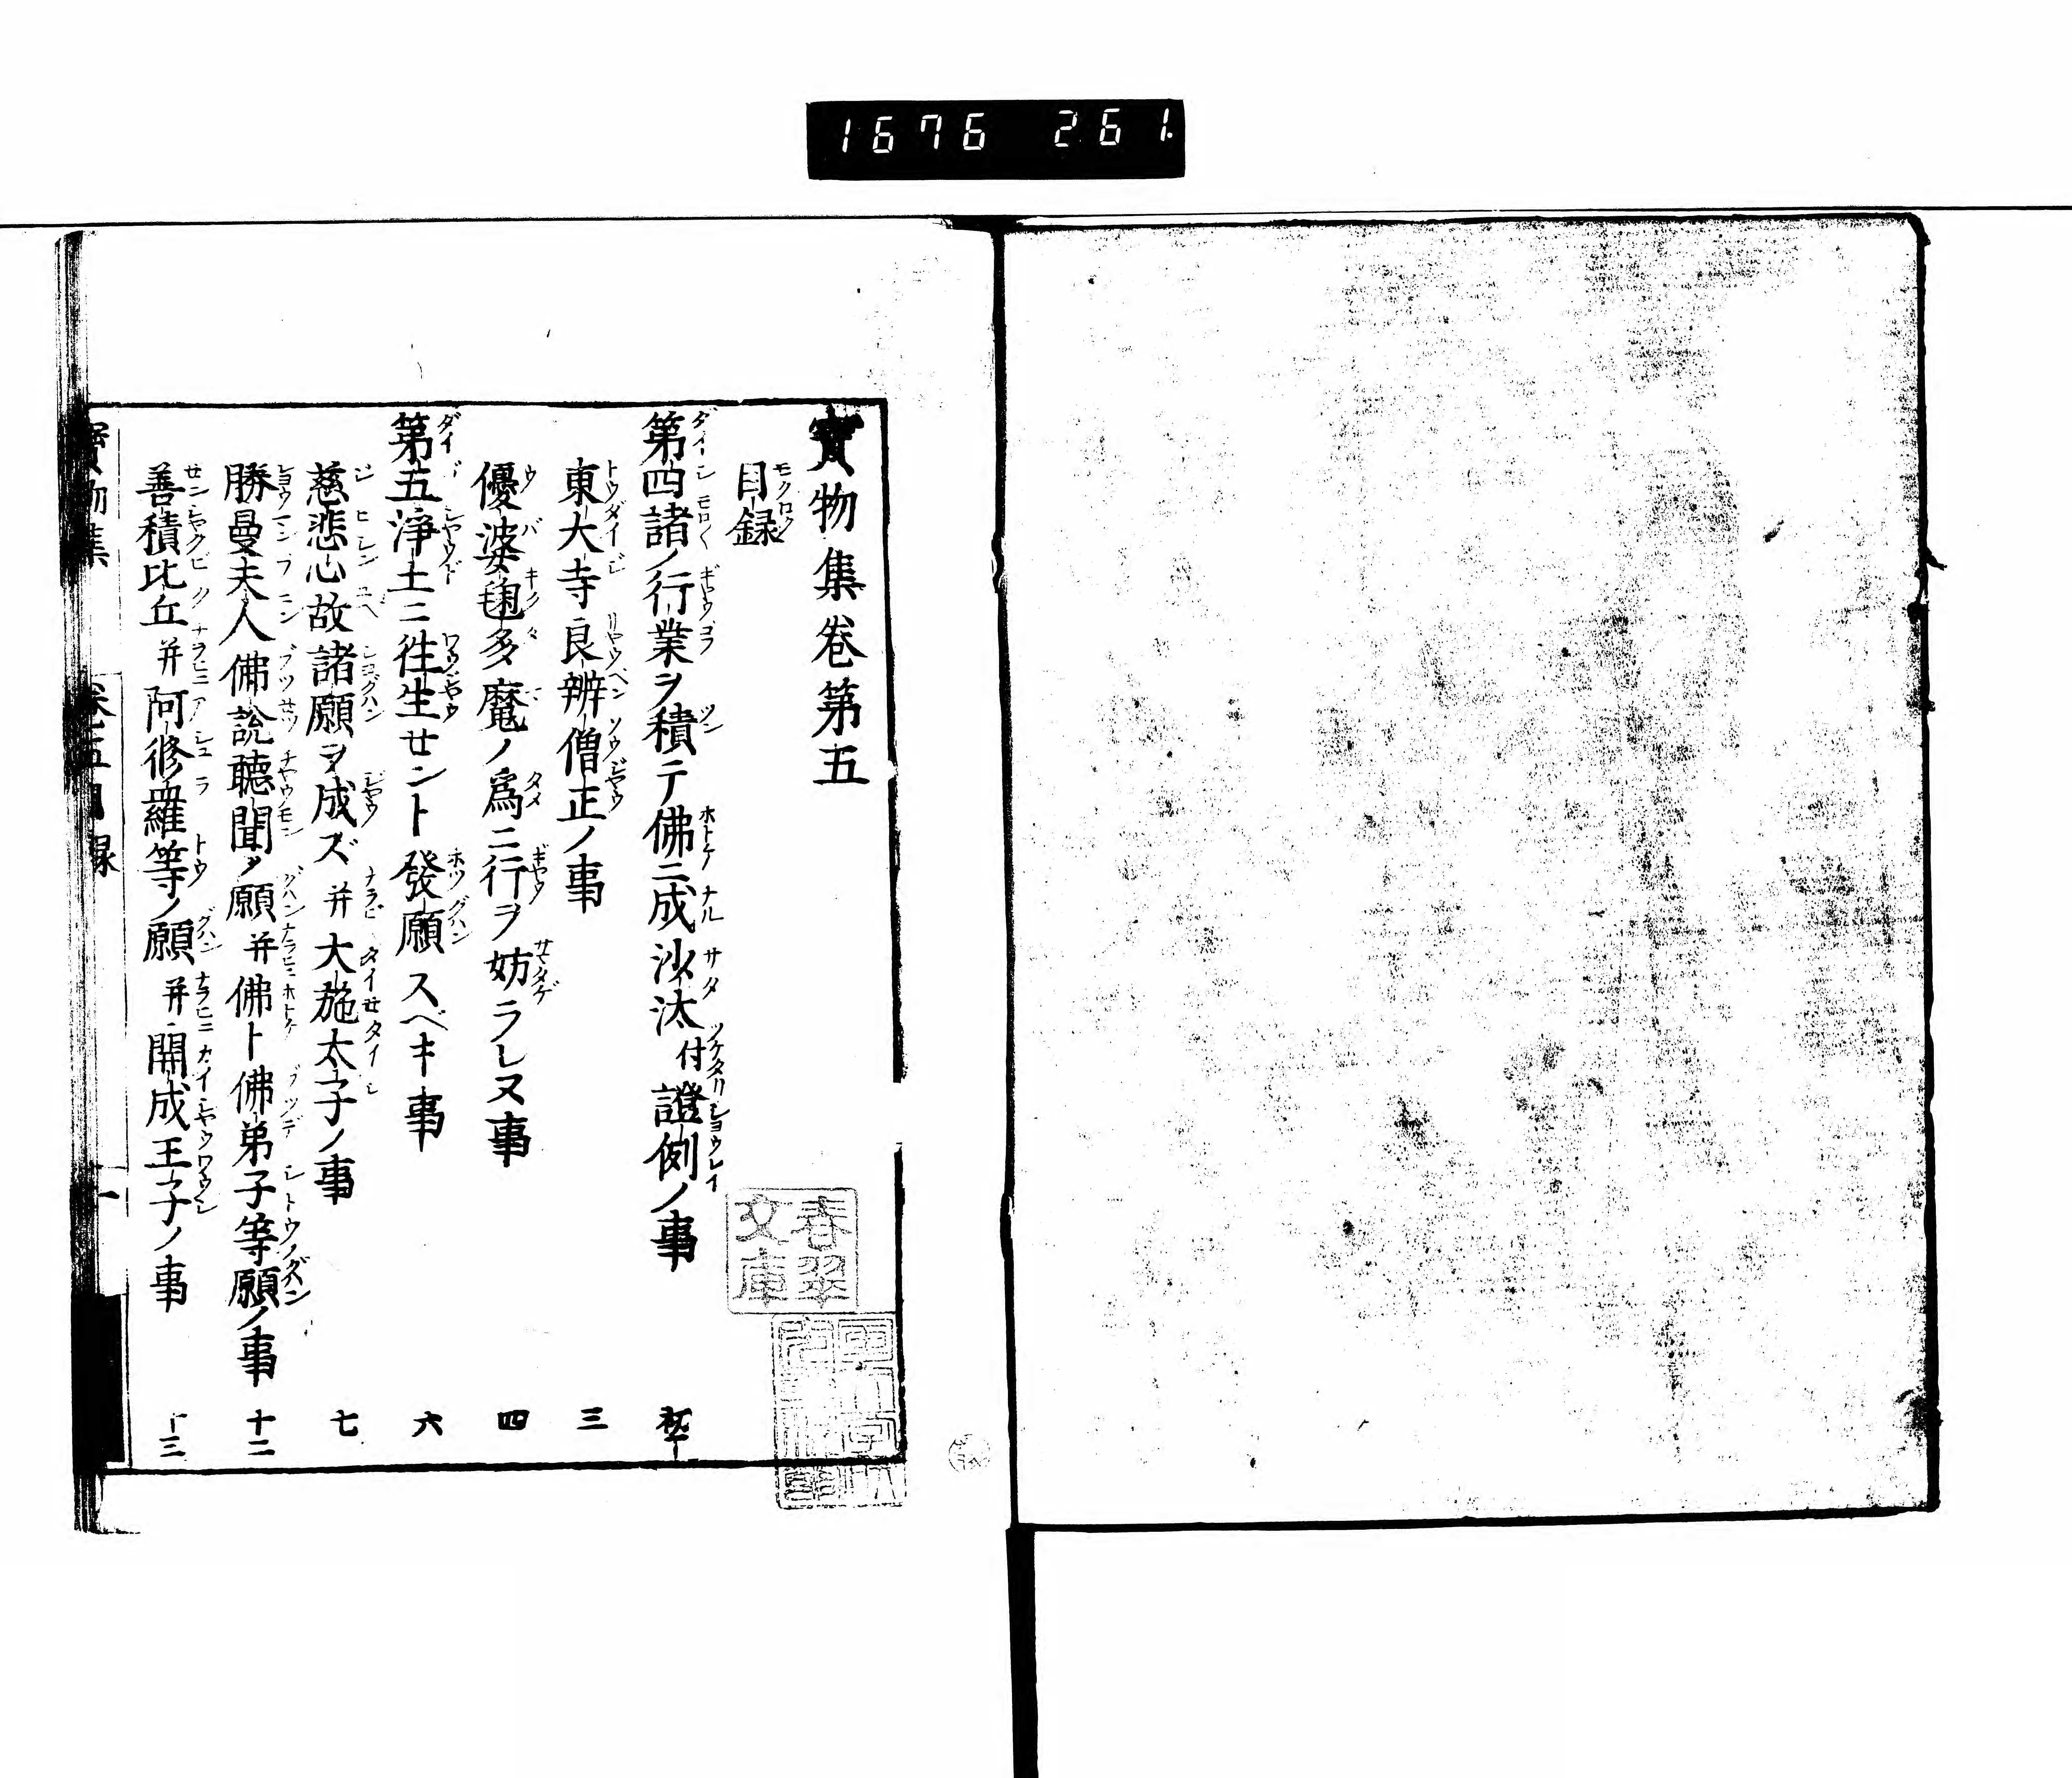 1676 261.
寳物集卷第五
目録
第四諸ノ行業ヲ積テ佛ニ成沙汰付證例ノ事
東大寺良辨僧正ノ事 三
優婆毱多魔ノ爲ニ行ヲ妨ラレヌ事 四
第五淨土ニ徃生セント發願スベキ事 六
慈悲心故諸願ヲ成ズ并大施太子ノ事 七
勝曼夫人佛說聽聞ノ願并佛ト佛弟子等願ノ事 十二
善積比丘并阿修羅等ノ願并開成王子ノ事 十三
寳物集 卷五目録 一
春翠文庫